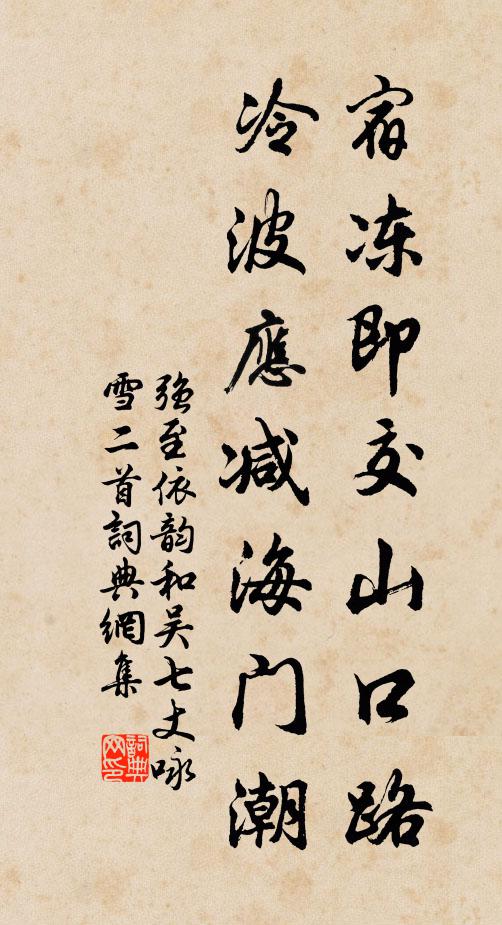 宿冻即交山口路
冷波應减海门潮
强至依韵和吴七丈咏
雪二首詞典網集
詞典网印